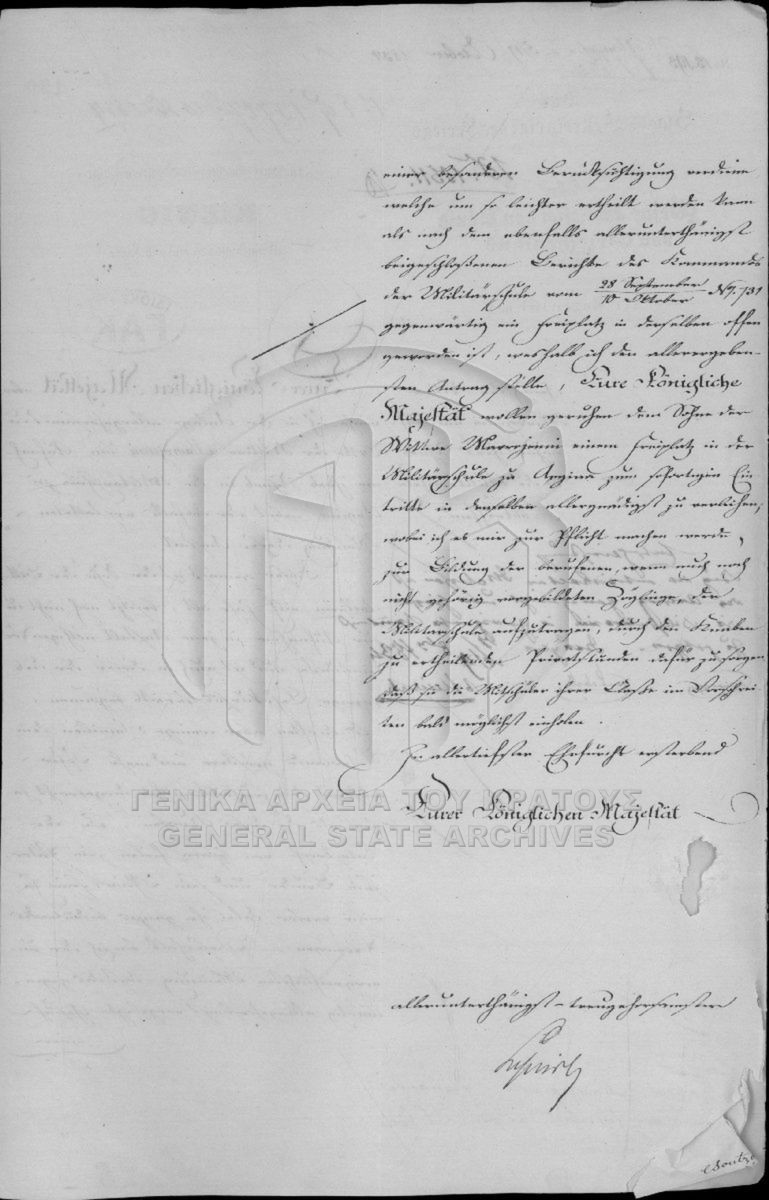 einer besonderen Berücksichtigung verdiene
welche um so leichter ertheilt werden kann
als nach dem ebenfalls allerunterthänigst
beigeschloßenen Berichte des Kommandos
der Militärschule vom 28 September / 10 Oktober No. 731
gegenwärtig ein Freiplatz in derselben offen
geworden ist, weshalb ich den allerergeben-
sten Antrag stelle, Eure Königliche
Majestät wollen geruhen dem Sohne der
Wittwe Mavrojenni einem Freiplatz in der
Militärschule zu Aegina zum sofortigen Ein
tritte in denselben allergnädigst zu verleihen,
wobei ich es mir zur Pflicht machen werde,
zur Bildung der berufenen, wenn auch noch
nicht gehörig vorgebildeten Zöglinge, der
Militärschule aufzutragen, durch den Knaben
zu ertheilenden Privatstunden dafür zu sorgen
daß sie die Mitschüler ihrer Claße im Vorschrei
ten bald möglichst einholen.
In allertiefster Ehrfurcht ersterbend
Eurer Königlichen Majestät
allerunterthänigst-treugehorsamster
ΓΕΝΙΚΑ ΑΡΧΕΙΑ ΤΟΥ ΚΡΑΤΟΥΣ
GENERAL STATE ARCHIVES